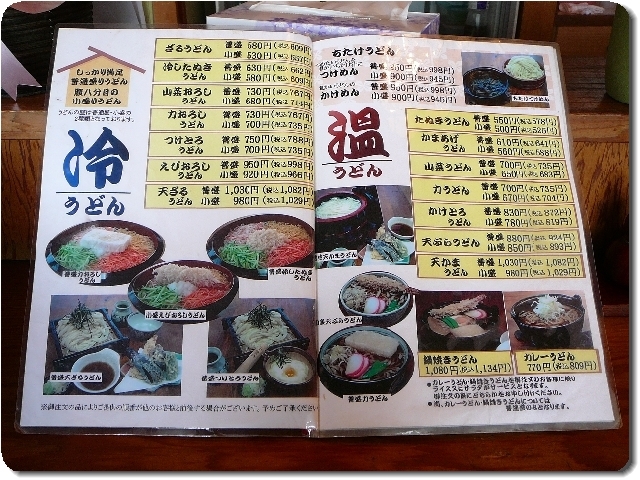 しっかり満足
普通盛りうどん
腹八分目の
小盛りうどん
冷
うどん
ざるうどん 普盛 580円(税込609円)
小盛 530円
冷したぬき
うどん
普盛 630円(税込662円)
小盛 580円(税込609円)
山菜おろし
うどん
普盛 730円(税込767円)
小盛 700円(税込735円)
力おろし
うどん
普盛 730円(税込767円)
小盛 700円(税込735円)
つけとろ
うどん
普盛 750円(税込788円)
小盛 700円(税込735円)
えびおろし
うどん
普盛 950円(税込998円)
小盛 920円(税込966円)
天ざる
うどん
普盛 1,030円(税込1,082円)
小盛 980円(税込1,029円)
普盛力おろしうどん
普盛冷したぬきうどん
小盛えびおろしうどん
普盛天ざるうどん
普盛つけとろうどん
おたけうどん
つけめん
普盛 950円(税込998円)
小盛 900円(税込945円)
かけめん
普盛 950円(税込998円)
小盛 900円(税込945円)
おたけつけめん
温
うどん
たぬきうどん
普盛 550円(税込578円)
小盛 500円(税込525円)
かまあげ
うどん
普盛 610円(税込641円)
小盛 560円(税込588円)
山菜うどん
普盛 700円(税込735円)
小盛 650円(税込683円)
力うどん
普盛 700円(税込735円)
小盛 670円(税込704円)
かけとろ
うどん
普盛 830円(税込872円)
小盛 780円(税込819円)
天ぷらうどん
普盛 880円(税込924円)
小盛 850円(税込893円)
天かま
うどん
普盛 1,030円(税込1,082円)
小盛 980円(税込1,029円)
普盛天かまうどん
小盛天ぷらうどん
普盛力うどん
鍋焼きうどん
1,080円(税込1,134円)
カレーうどん
770円(税込809円)